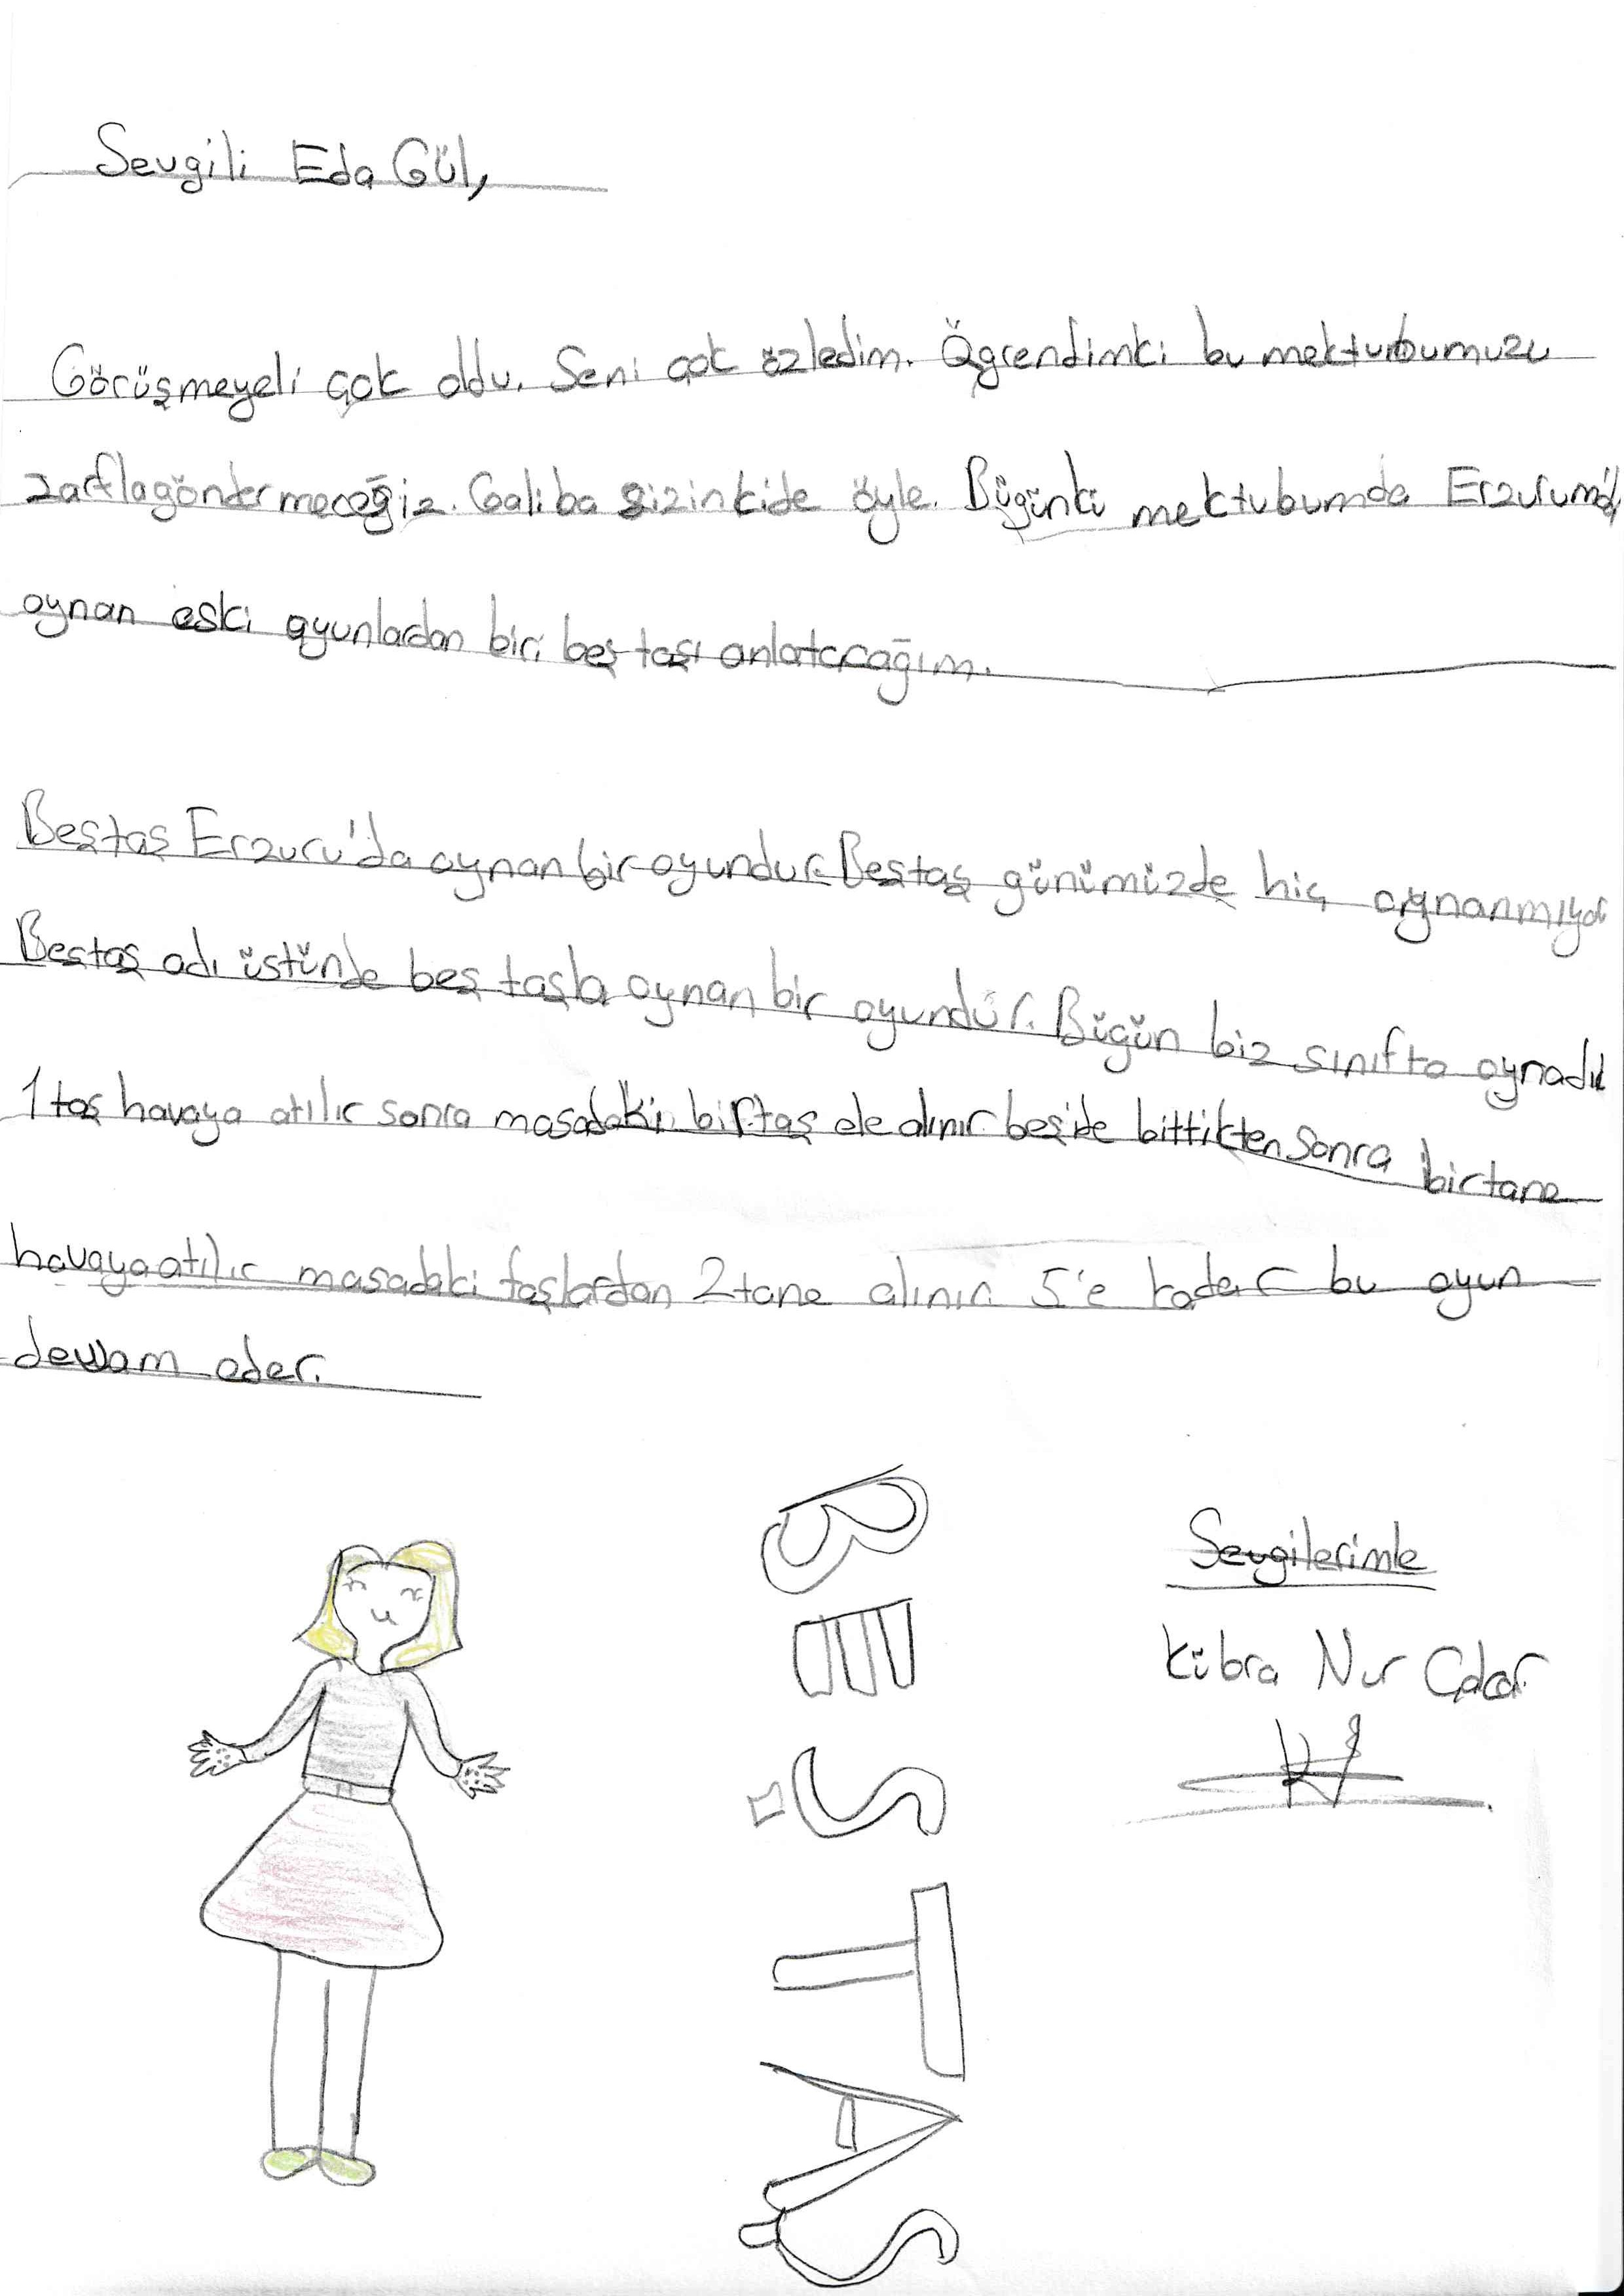 Sevgili Eda Gül,
Görüşmeyeli çok oldu. Seni çok özledim. Öğrendimki bu mekturbumuzu
zarflagöndermeceğiz. Galiba sizinkide öyle. Bügünkü mektubumda Erzurum'da
oynan eski oyunlardan biri beş taşı anlatacağım.
Beştaş Erzuru'da oynan bir oyundur. Beştaş günümüzde hiç oynanmıyor
Beştaş adı üstünde beş taşla oynan bir oyundur. Bügün biz sınıfta oynadık
1 taş havaya atılır sonra masadaki bir taş ele alınır beşide bittikten sonra birtane
havaya atılır masadaki taşlardan 2 tane alınır. 5'e kadar bu oyun
devam eder.
Sevgilerimle
Kübra Nur
BEŞTAŞ